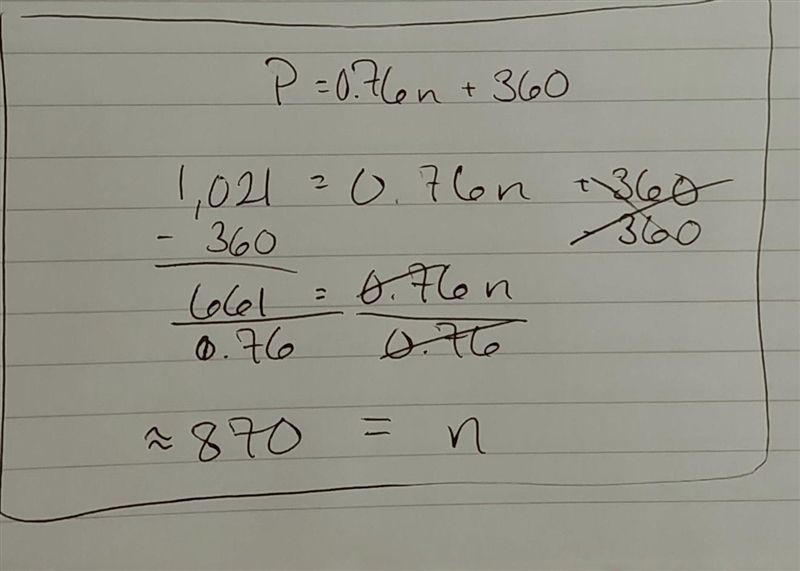 P = 0.76n + 360
1,021 = 0.76n + 360
- 360 - 360
661 = 0.76n
0.76 0.76
≈ 870 = n